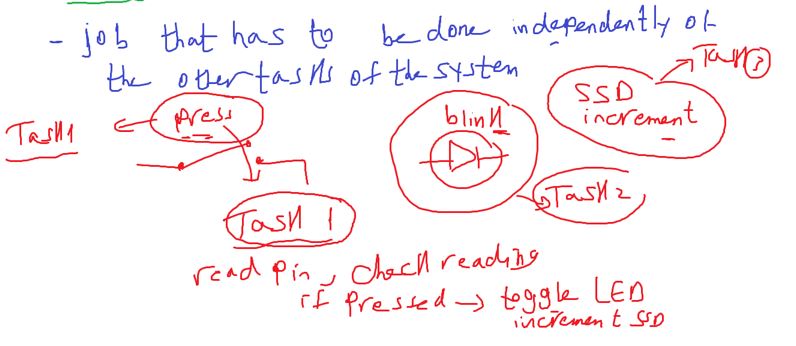 - job that has to be done independently of
the other tasks of the system
Task 3
SSD
increment
press
blink
Task 1
Task 2
Task 1
read pin, check reading
if pressed → toggle LED
increment SSD